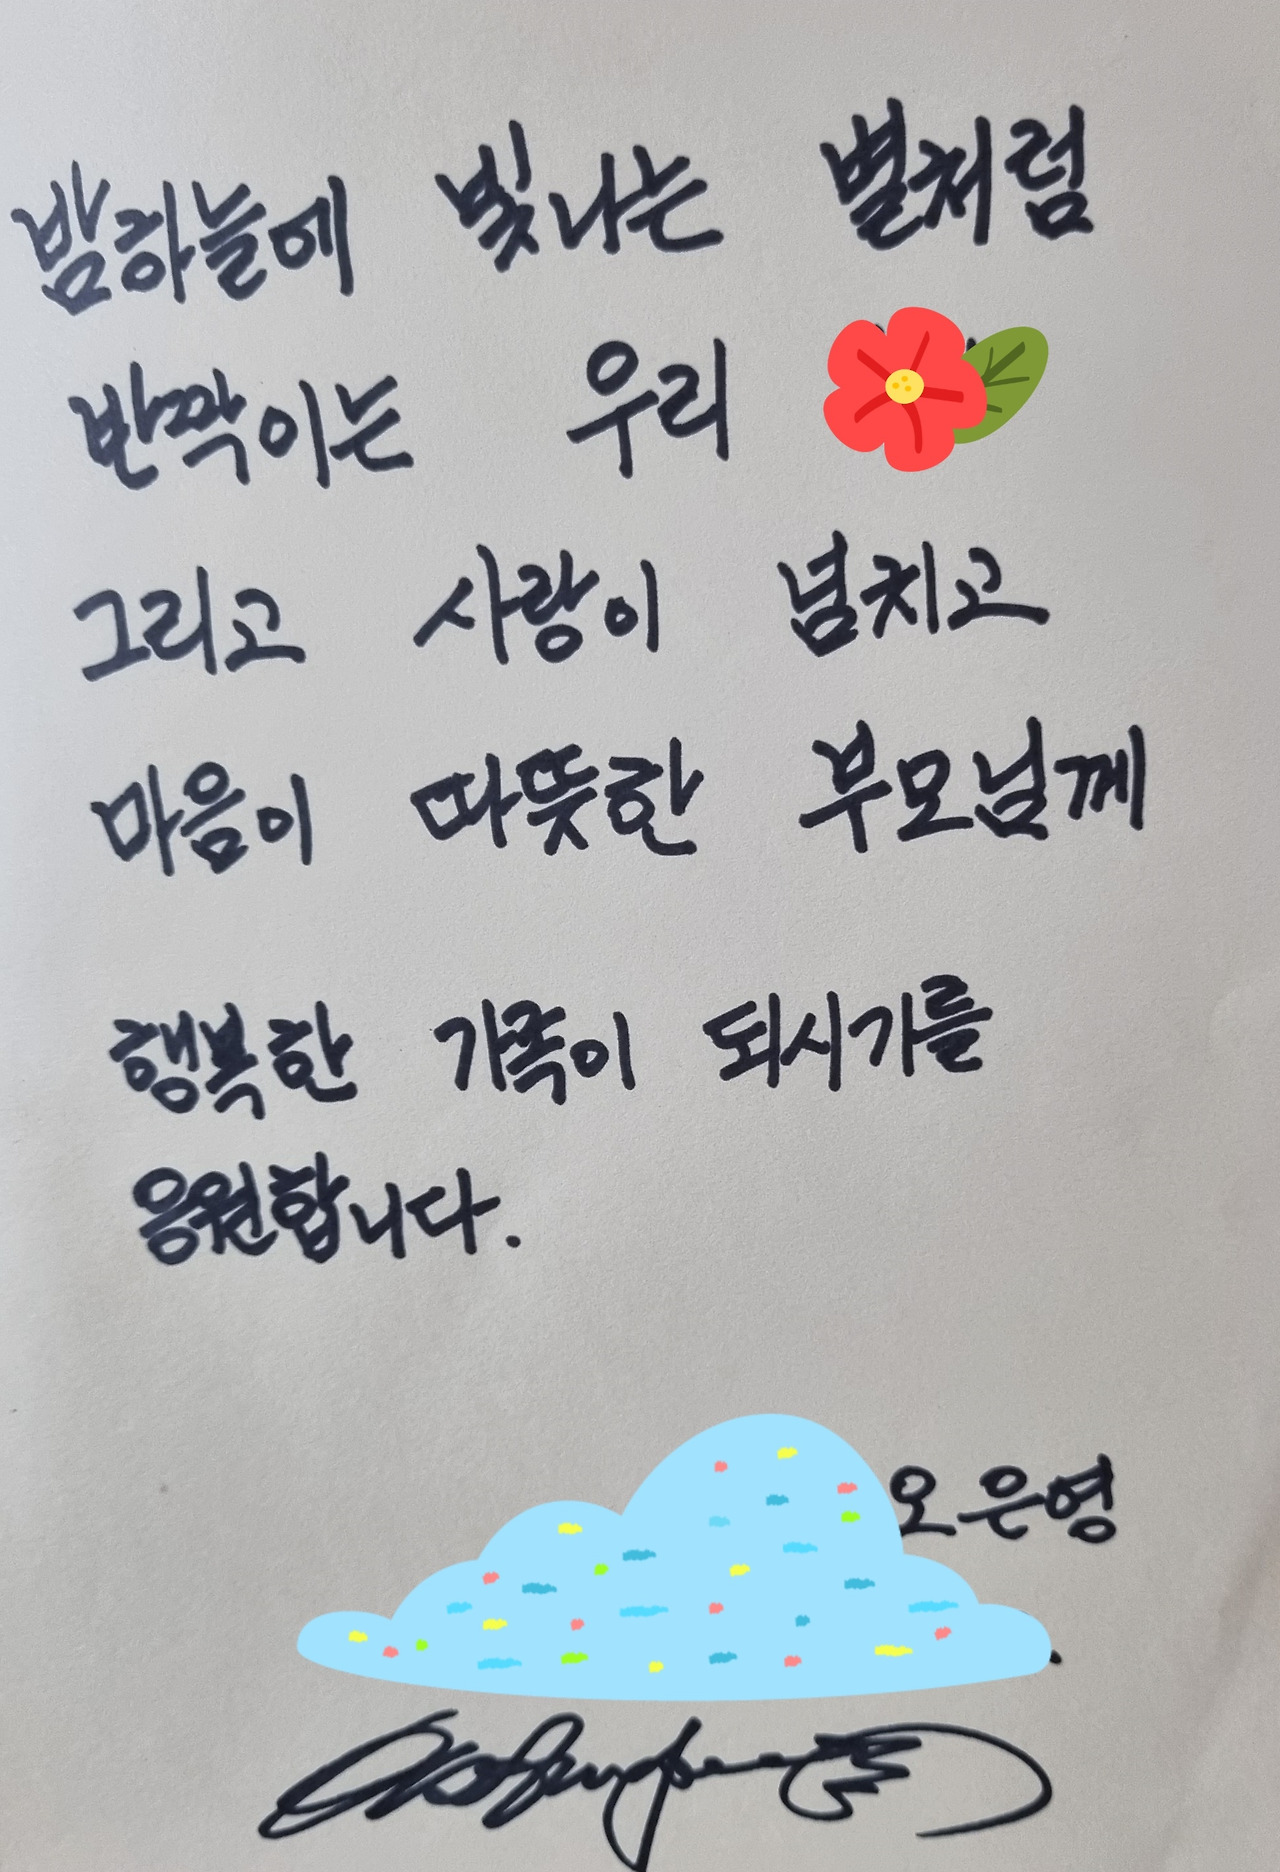 밤하늘에 빛나는 별처럼
반짝이는 우리
그리고 사랑이 넘치고
마음이 따뜻한 부모님께
행복한 가족이 되시기를
응원합니다.
오은영